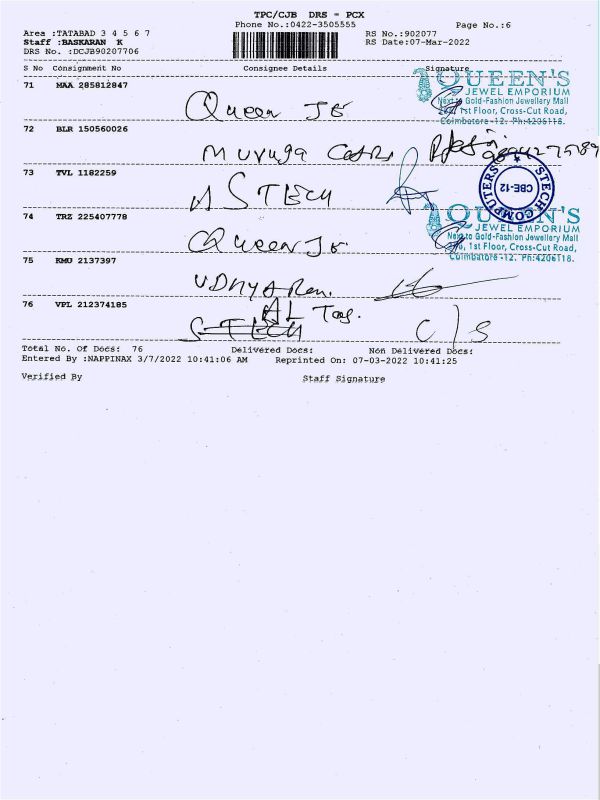 TPC/CJB DRS - PCX
Phone No.:0422-3505555
Page No.:6
Area :TATABAD 3 4 5 6 7
RS No.:902077
Staff :BASKARAN K
RS Date:07-Mar-2022
DRS No. :DCJB90207706
S No Consignment No Consignee Details Signature
71 MAA 285812847
Queen JE
QUEEN'S
JEWEL EMPORIUM
Next to Gold-Fashion Jewellery Mall
1st Floor, Cross-Cut Road,
Coimbatore-12. Ph:4206118.
72 BLR 150560026
Muruga
73 TVL 1182259
A S TECH
STECH COMPUTERS
CBE-12
74 TRZ 225407778
Queen JE
QUEEN'S
JEWEL EMPORIUM
Next to Gold-Fashion Jewellery Mall
1st Floor, Cross-Cut Road,
Coimbatore-12. Ph:4206118.
75 KMU 2137397
76 VPL 212374185
S-TECH
C/S
Total No. Of Docs: 76 Delivered Docs: Non Delivered Docs:
Entered By :NAPPINAX 3/7/2022 10:41:06 AM Reprinted On: 07-03-2022 10:41:25
Verified By Staff Signature